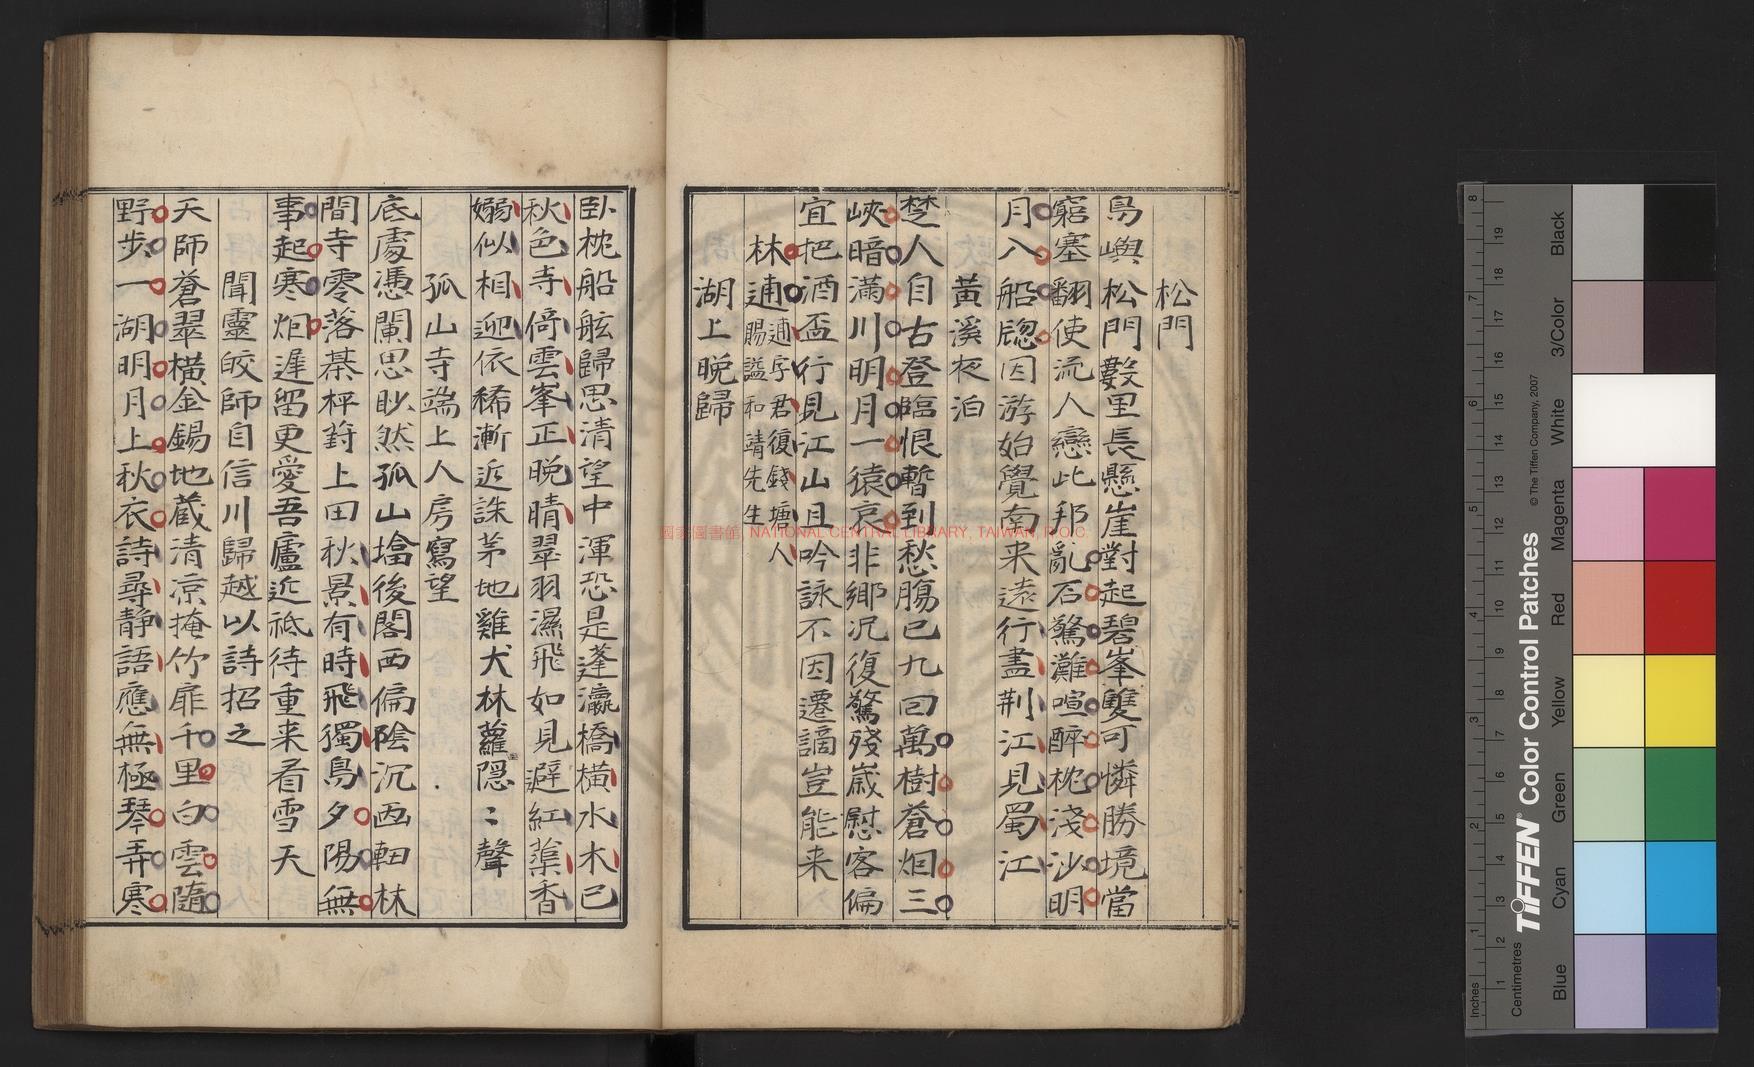 松門
島嶼松門數里長懸崖對起碧峯雙可憐勝境當
窮塞翻使流人戀此邦亂石驚灘喧醉枕淺沙明
月入船牕因游始覺南来遠行盡荆江見蜀江
黃溪夜泊
楚人自古登臨恨暫到愁腸已九回萬樹蒼烟三
峽暗滿川明月一猿哀非鄉况復驚殘歲慰客偏
宜把酒盃行見江山且吟詠不因遷謫豈能来
林逋逋字君復錢塘人賜謚和靖先生
湖上晚歸
卧枕船舷歸思清望中渾恐是蓬瀛橋橫水木已
秋色寺倚雲峯正晚晴翠羽濕飛如見避紅蕖香
嫋似相迎依稀漸近誅茅地雞犬林蘿隱〻聲
孤山寺端上人房寫望
底處憑闌思眇然孤山塔後閣西偏陰沉畫軸林
間寺零落棊枰葑上田秋景有時飛獨鳥夕陽無
事起寒烟遲留更愛吾廬近祗待重来看雪天
聞靈皎師自信川歸越以詩招之
天師蒼翠橫金錫地藏清凉掩竹扉千里白雲隨
野步一湖明月上秋衣詩尋靜語應無極琴弄寒
國家圖書館 NATIONAL CENTRAL LIBRARY, TAIWAN, R.O.C.
TIFFEN® Color Control Patches
© The Tiffen Company, 2007
Inches
Centimetres
Blue
Cyan
Green
Yellow
Red
Magenta
White
3/Color
Black
1 2 3 4 5 6 7 8
1 2 3 4 5 6 7 8 9 10 11 12 13 14 15 16 17 18 19